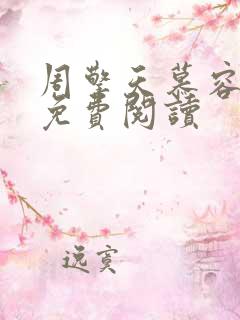 周擎天慕容
免費閱讀
逸寞